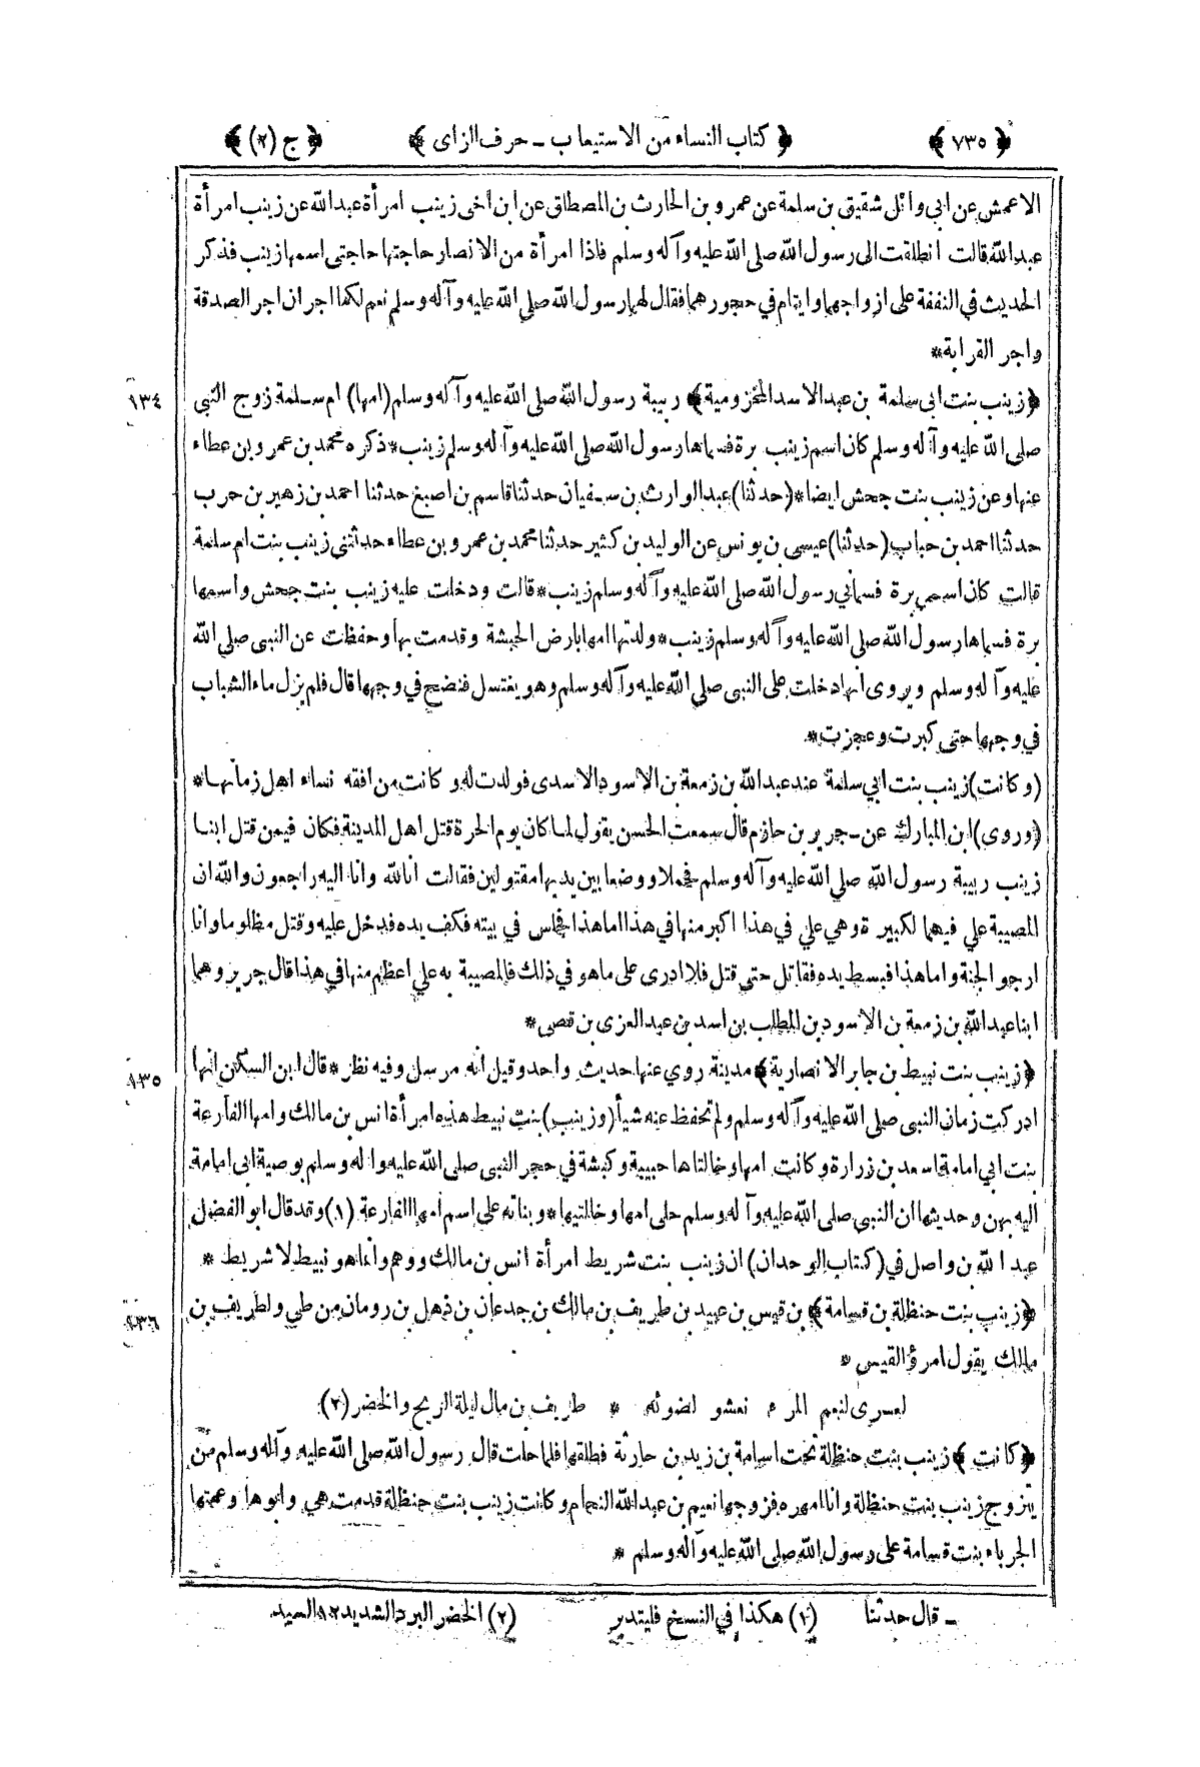 ﴿ ٧٣٥ ﴾ ﴿ كتاب النساء من الاستيعاب ـ حرف الزاى ﴾ ﴿ ج (٢) ﴾
الاعمش عن ابي وائل شقيق بن سلمة عن عمرو بن الحارث بن المصطلق عن ابن اخى زينب امرأة عبدالله عن زينب امرأة
عبدالله قالت انطلقت الى رسول الله صلى الله عليه وآله وسلم فاذا امرأة من الانصار حاجتها حاجتى اسمها زينب فذكر
الحديث في النفقة على ازواجهما وايتام في حجورهما فقال لهما رسول الله صلى الله عليه وآله وسلم نعم لكما اجران اجر الصدقة
واجر القرابة*
١٣٤ ﴿زينب بنت ابى سلمة بن عبد الاسد المخزومية﴾ ربيبة رسول الله صلى الله عليه وآله وسلم (امها) ام سلمة زوج النبي
صلى الله عليه وآله وسلم كان اسم زينب برة فسماها رسول الله صلى الله عليه وآله وسلم زينب*ذكره محمد بن عمرو بن عطاء
عنها وعن زينب بنت جحش ايضا*(حدثنا)عبد الوارث بن سفيان حدثنا قاسم بن اصبغ حدثنا احمد بن زهير بن حرب
حدثنا احمد بن حباب (حدثنا)عيسى بن يونس عن الوليد بن كثير حدثنا محمد بن عمرو بن عطاء حدثنى زينب بنت ام سلمة
قالت كان اسمي برة فسماني رسول الله صلى الله عليه وآله وسلم زينب*قالت ودخلت عليه زينب بنت جحش واسمها
برة فسماها رسول الله صلى الله عليه وآله وسلم زينب*ولدتها امها بارض الحبشة وقدمت بها وحفظت عن النبى صلى الله
عليه وآله وسلم ويروى انها دخلت على النبى صلى الله عليه وآله وسلم وهو يغتسل فنضح في وجهها قال فلم يزل ماء الشباب
في وجهها حتى كبرت وعجزت*
(وكانت)زينب بنت ابي سلمة عند عبدالله بن زمعة بن الاسود الاسدى فولدت له وكانت من افقه نساء اهل زمانها*
(وروى)ابن المبارك عن ـ جرير بن حازم قال سمعت الحسن يقول لما كان يوم الحرة قتل اهل المدينة فكان فيمن قتل ابنا
زينب ربيبة رسول الله صلى الله عليه وآله وسلم فحملا ووضعا بين يديها مقتولين فقالت انا لله وانا اليه راجعون والله ان
المصيبة علي فيهما لكبيرة وهي علي في هذا اكبر منها في هذا اما هذا فجلس في بيته فكف يده فدخل عليه وقتل مظلوما وانا
ارجو الجنة واما هذا فبسط يده فقاتل حتى قتل فلا ادرى على ما هو في ذلك فالمصيبة به علي اعظم منها في هذا قال جرير وهما
ابنا عبدالله بن زمعة بن الاسود بن المطلب بن اسد بن عبد العزى بن قصى*
١٣٥ ﴿زينب بنت نبيط بن جابر الانصارية﴾ مدينة روي عنها حديث واحد وقيل انه مرسل وفيه نظر*قال ابن السكن انها
ادركت زمان النبى صلى الله عليه وآله وسلم ولم تحفظ عنه شيأ (وزينب)بنت نبيط هذه امرأة انس بن مالك وامها الفارعة
بنت ابي امامة اسعد بن زرارة وكانت امها وخالتاها حبيبة وكبشة في حجر النبى صلى الله عليه واله وسلم بوصية ابي امامة
اليه بهن وحديثها ان النبى صلى الله عليه وآله وسلم حلى امها وخالتيها*وبناته على اسم امها الفارعة (١) وقد قال ابو الفضل
عبد الله بن واصل في (كتاب الوحدان) ان زينب بنت شريط امرأة انس بن مالك ووهم وانما هو نبيط لا شريط *
١٣٦ ﴿زينب بنت حنظلة بن قسامة﴾ بن قيس بن عبيد بن طريف بن مالك بن جدعان بن ذهل بن رومان من طي ولطريف بن
مالك يقول امرؤ القيس *
لعمرى لنعم المرء نعشو لضوئه * طريف بن مال ليلة الريح والخضر (٢)
﴿كانت﴾ زينب بنت حنظلة تحت اسامة بن زيد بن حارثة فطلقها فلما حلت قال رسول الله صلى الله عليه وآله وسلم من
يتزوج زينب بنت حنظلة وانا امهره فزوجها نعيم بن عبدالله النحام وكانت زينب بنت حنظلة قدمت هي وابوها وعمتها
الجرباء بنت قسامة على رسول الله صلى الله عليه وآله وسلم *
ـ قال حدثنا (١) هكذا في النسخ فليتدبر (٢) الخضر البرد الشديد ١٢ السيد